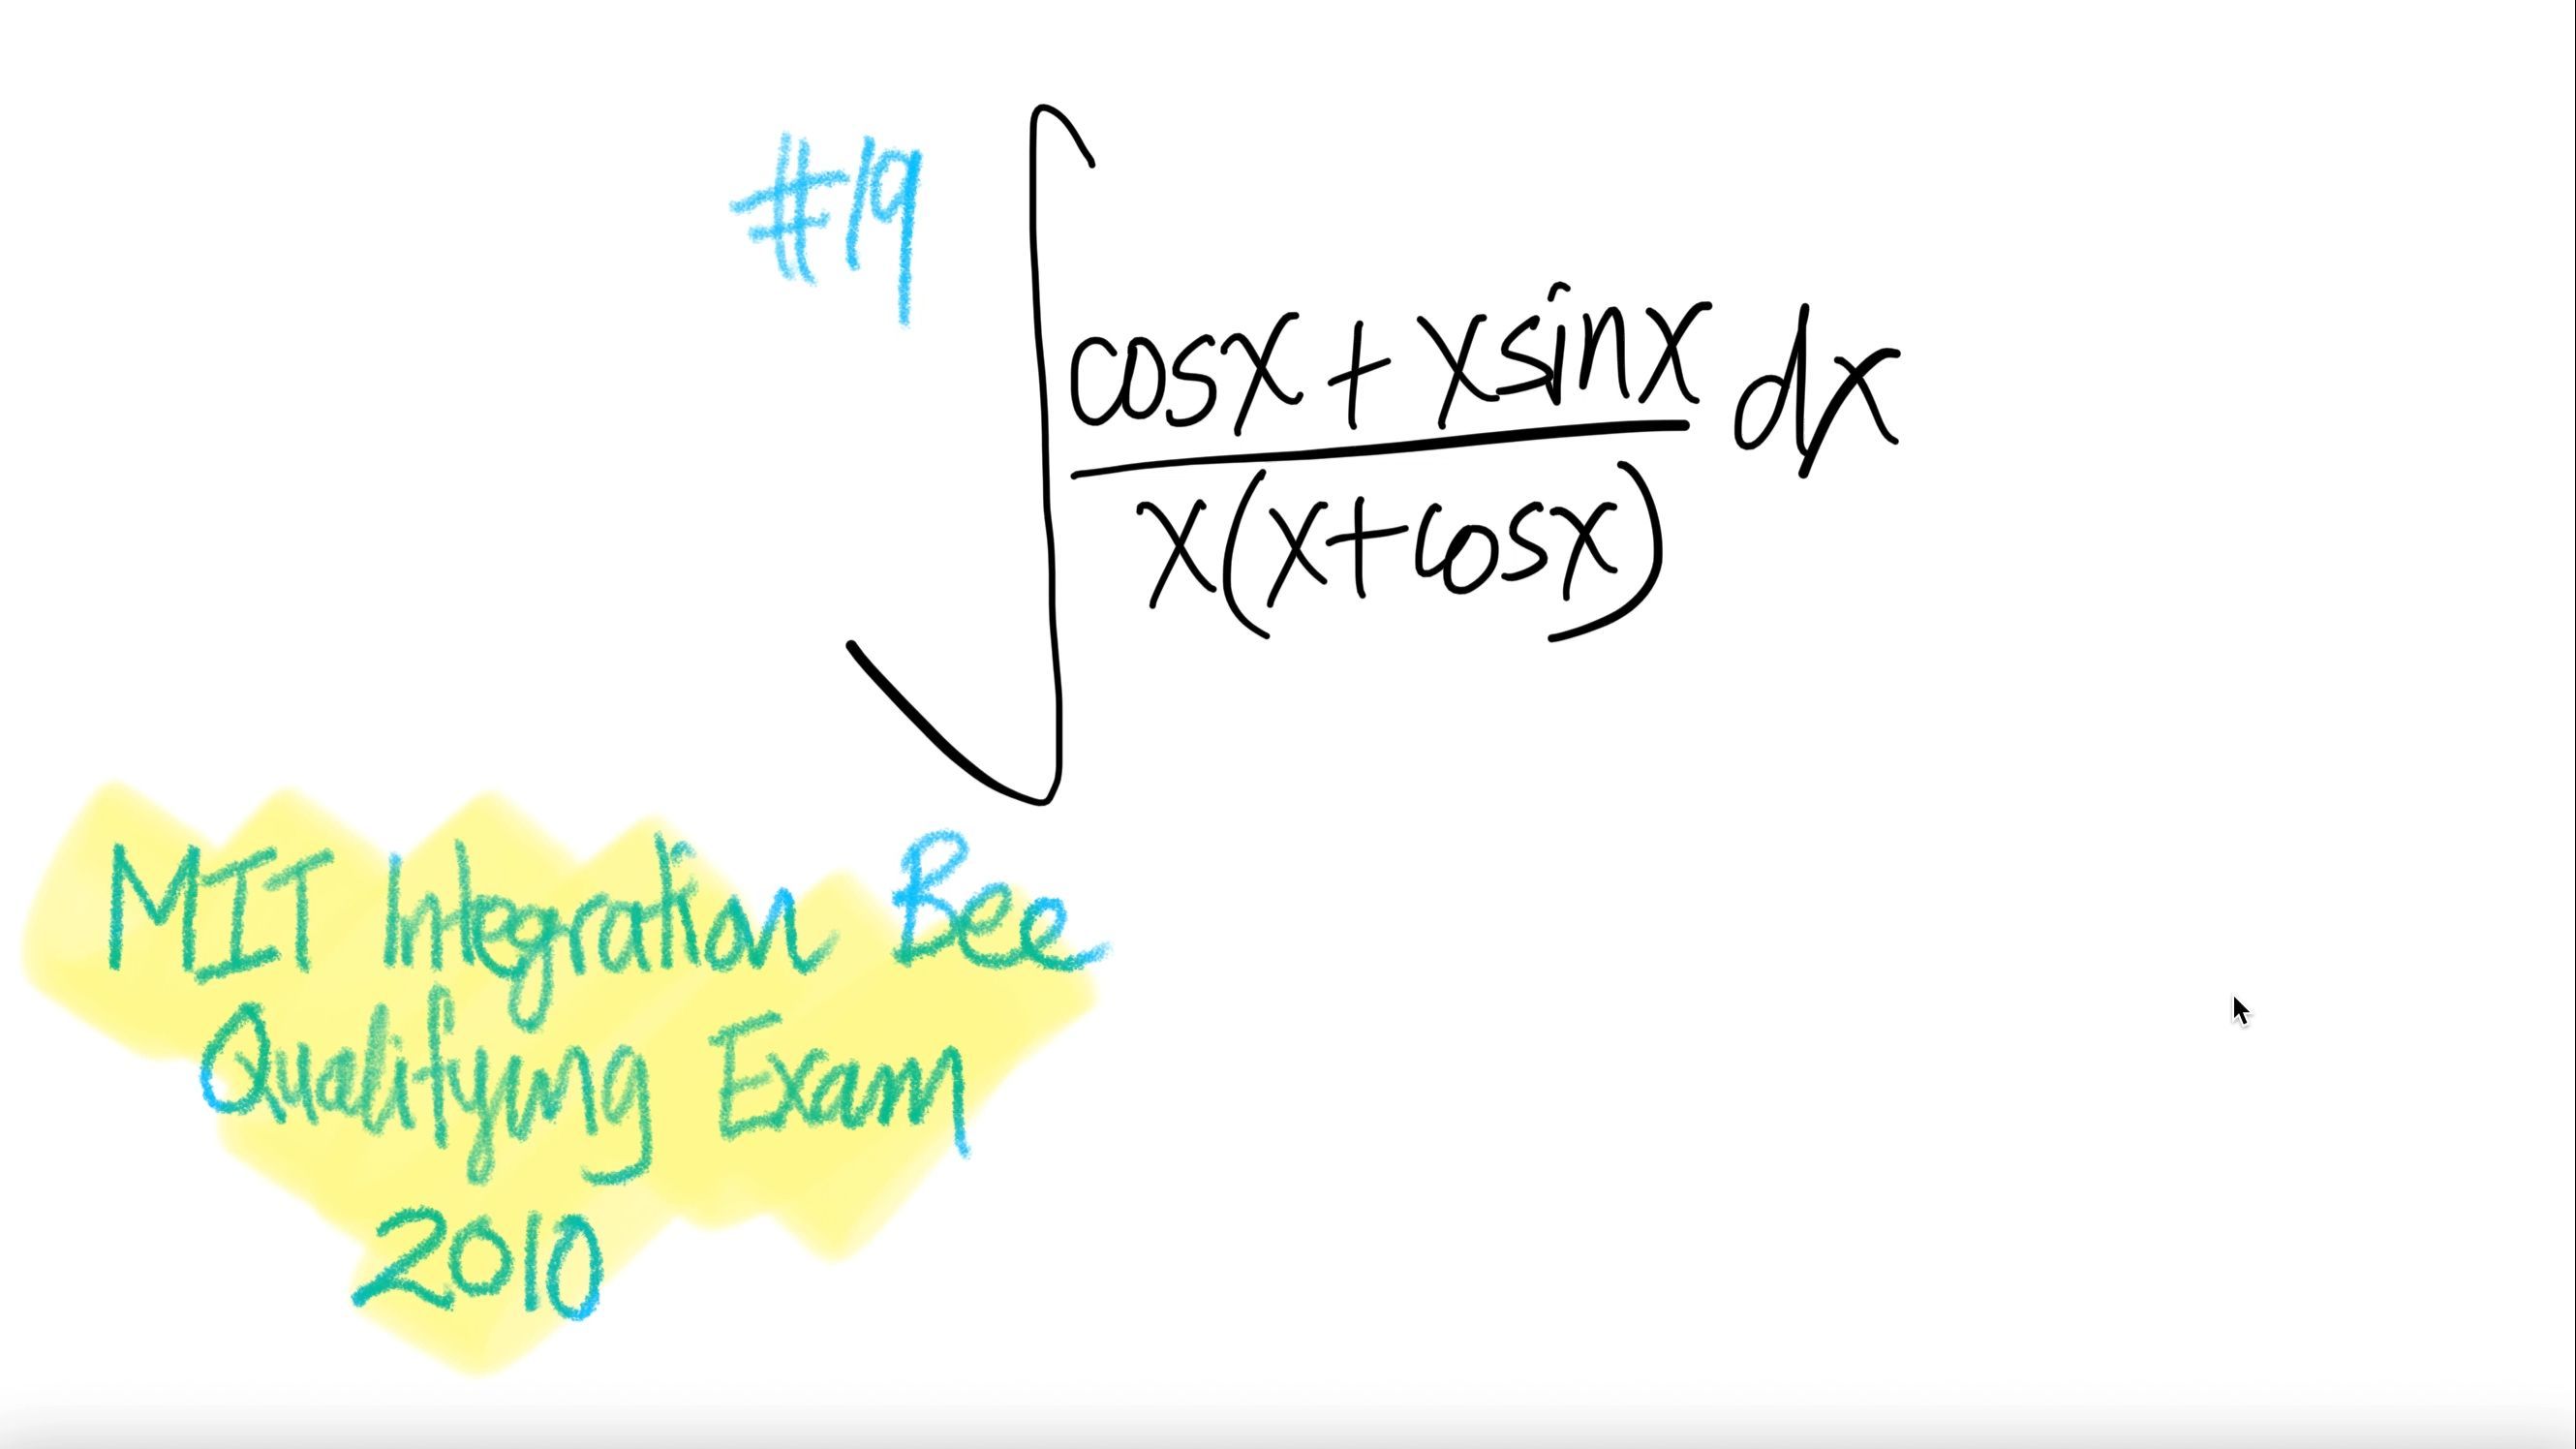 #19
∫ cosx + xsinx dx
x(x+cosx)
MIT Integration Bee
Qualifying Exam
2010